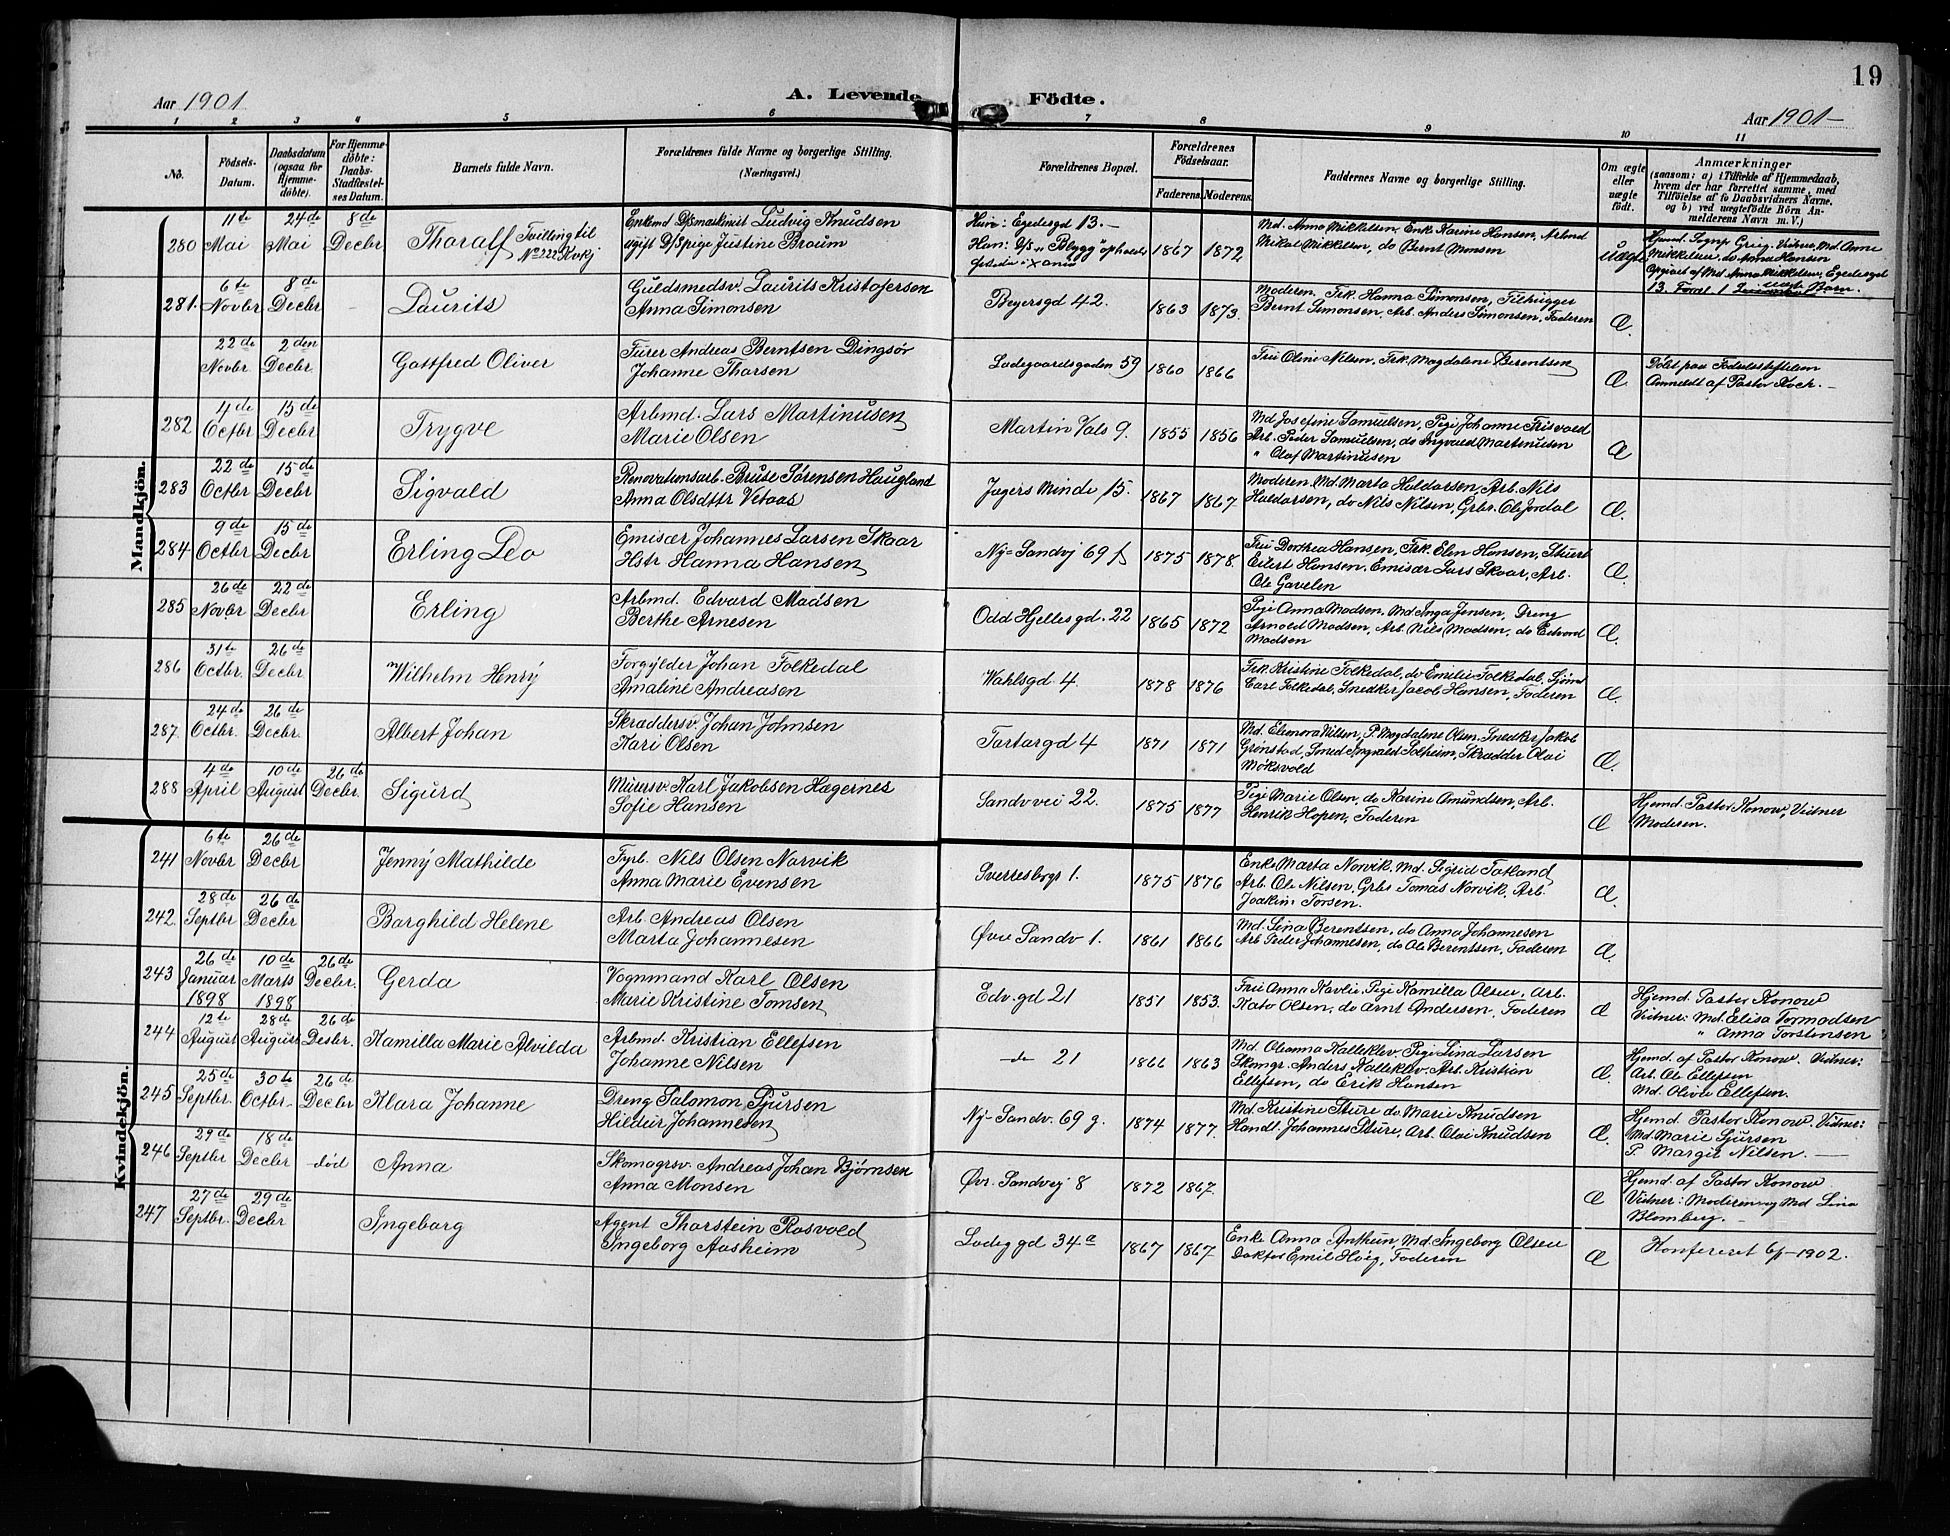 19
Aar 1901
A. Levende Födte.
Aar 1901-
1 2 3 4 5 6 7 8 9 10 11
No.
Födsels-
Datum.
Daabsdatum
(ogsaa for
Hjemme-
døbte).
For Hjemme-
døbte:
Daabs-
Stadfæstel-
ses Datum.
Barnets fulde Navn.
Forældrenes fulde Navne og borgerlige Stilling.
(Næringsvei.)
Forældrenes Bopæl.
Forældrenes
Födselsaar.
Faderens. Moderens.
Faddernes Navne og borgerlige Stilling.
Om ægte
eller
uægte
født.
Anmærkninger
(saasom: a) i Tilfælde af Hjemmedaab,
hvem der har forrettet samme, med
Tilföielse af to Daabsvidners Navne.
og b) ved uægtefödte Börn An-
melderens Navn m. V.)
Mandkjön.
280
11te Mai
24de Mai
8de Decbr
Thoralf Tvilling til
No 222 Kvkj
Enkemd D/Smaskinist Ludvig Knudsen
ugift D/Spige Justine Broum
Hun: Egedesgd 13. -
Han: D/s "Blygg" opholds
1867 1872
Md. Anna Mikkelsen, Enk. Karine Hansen, Arbmd
Mikal Mikkelsen, do Bernt Monsen
uægte
Mikkelsen, do Anna Hansen
Opgivet af Md. Anna Mikkelsen, Egedesgd
281.
6te Novbr
8de Decbr
Laurits
Guldsmedsv. Laurits Kristofersen
Anna Simonsen
Beyersgd 42.
1863 1873.
Moderen. Frk. Hanna Simonsen, Tilhugger
Bernt Simonsen, Arb. Anders Simonsen, Faderen
Æ.
22de Novbr
2den Decbr
Gottfred Oliver
Furer Andreas Berntsen Dingsør
Johanne Thorsen
Ladegaardsgaden 59
1860 1866
Fru Oline Nilsen, Frk. Magdalene Berentsen
Æ
Døbt paa Fødselsstiftelsen
Anmeldt af Pastor Koch. -
282
4de Octbr
15de Decbr
Trygve
Arbmd. Lars Martinusen
Marie Olsen
Martin Vals 9.
1855 1856
Md Josefine Samuelsen, Pige Johanne Trisvold
Arb. Peder Samuelsen, do Ingvald Martinusen
" Olaf Martinusen
Æ
283
22de Octbr
15de Decbr
Sigvald
Renovationsarb. Bruse Sørensen Haugland
Anna Olsdttr Vetaas
Jægers Minde 15.
1867 1867
Moderen. Md. Marta Haldorsen, Arb. Nils
Haldorsen, do Nils Nilsen, Grbr. Ole Jordal
Æ.
284
9de Octbr
15de Decbr
Erling Leo
Emisær Johannes Larsen Skaar
Hstr Hanna Hansen
Ny-Sandvj 69 f
1875 1878.
Fru Dorthea Hansen, Frk. Elen Hansen, Stuert
Eilert Hansen, Emisær Lars Skaar, Arb.
Ole Gavelen
Æ.
285
26de Novbr
22de Decbr
Erling
Arbmd. Edvard Madsen
Berthe Arnesen
Odd Hjellesgd. 22
1865 1872
Pige Anna Madsen, Md Inga Jensen, Dreng
Arnold Madsen, Arb. Nils Madsen, do Edvard
Madsen
Æ.
286
31te Octbr.
26de Decbr.
Wilhelm Henry
Forgylder Johan Folkedal
Amaline Andreasen
Wahlsgd 4.
1878 1876
Frk. Kristine Folkedal, do Emilie Folkedal, Sjømd
Carl Folkedal, Snedker Jacob Hansen, Faderen
Æ.
287.
24de Octbr.
26de Decbr.
Albert Johan
Skræddersv. Johan Johnsen
Kari Olsen
Tartargd 4
1871 1871
Md. Elenora Nilsen, P. Magdalene Olsen, Snedker Jakob
Grønstad, Smed Ingvald Solheim, Skrædder Olai
Møksvold
Æ.
288
4de April
10de August
26de Decbr.
Sigurd
Murersv. Karl Jakobsen Hægernes
Sofie Hansen
Sandvvei 22.
1875 1877
Pige Marie Olsen, do Karine Amundsen, Arb.
Henrik Hopen, Faderen
Æ
Hjemd. Pastor Konow, Vidner
Moderen.
Kvindekjön.
241
6te Novbr
26de Decbr
Jenny Mathilde
Fyrb. Nils Olsen Norvik
Anna Marie Evensen
Sverresborg 1.
1875 1876
Enke Marta Norvik, Md. Sigrid Fatland
Arb. Ole Nilsen, Grbr. Tomas Norvik, Arb.
Joakim Torsen.
Æ.
242.
28de Septbr
26de Decbr
Borghild Helene
Arb. Andreas Olsen
Marta Johannesen
Øvre Sandv 1.
1861 1866
Md. Lina Berentsen, do Anna Johannesen
Arb. Peder Johannesen, do Ole Berentsen, Faderen
Æ.
243
26de Januar 1898
10de Marts 1898
26de Decbr.
Gerda
Vognmand Karl Olsen
Marie Kristine Tomsen
Edv. gd 21
1851 1853.
Fru Anna Kavlie, Pige Kamilla Olsen, Arb.
Kato Olsen, do Arnt Andersen, Faderen
Æ
Hjemd. Pastor Konow
Vidner: Md. Elisa Tormodsen
" Anna Torstensen
244
12te August
28de August
26de Decbr.
Kamilla Marie Alvilda
Arbmd. Kristian Ellefsen
Johanne Nilsen
- de 21
1866 1863
Md. Oleanna Kalleklev, Pige Lina Larsen
Skomgr. Anders Kalleklev, Arb. Kristian
Ellefsen, do Erik Hansen
Æ.
Hjemd. af Pastor Konow. Vidner:
Arb. Ole Ellefsen
Md. Olive Ellefsen.
245
25de Septbr.
30te Octbr.
26de Decbr
Klara Johanne
Dreng Salomon Sjursen
Hildeur Johannesen
Ny-Sandv. 69 g.
1874 1877.
Md. Kristine Sture do Marie Knudsen
Handl. Johannes Sture, Arb. Olai Knudsen
Æ.
Hjemd. Pastor Konow. Vidner:
Md. Marie Sjursen
P. Margit Nilsen. -
246
29de Septbr
18de Decbr
død
Anna
Skomagrsv. Andreas Johan Bjørnsen
Anna Monsen
Øvr. Sandvej 8
1872 1867.
Æ
Hjemd. af Pastor Konow
Vidner: Moderen og Md Lina
Blomberg. -
247
27de Septbr.
29de Decbr
Ingeborg
Agent Thorstein Rosvold
Ingeborg Aasheim
Ladeggd 34a
1867 1867
Enke Anna Anthun Md. Ingeborg Olsen
Doktor Emil Høeg, Faderen
Æ
Konfereret 6/1-1902.